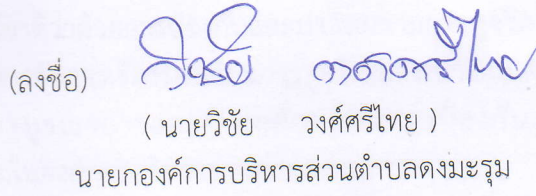 (ลงชื่อ) วิชัย วงศ์ศรีไทย
(นายวิชัย วงศ์ศรีไทย)
นายกองค์การบริหารส่วนตำบลดงมะรุม